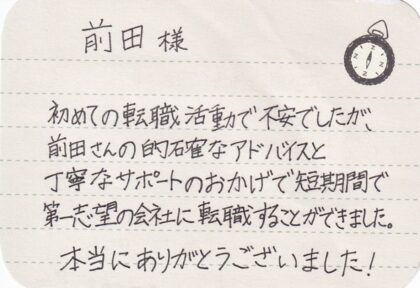 前田様
初めての転職活動で不安でしたが、
前田さんの的確なアドバイスと
丁寧なサポートのおかげで短期間で
第一志望の会社に転職することができました。
本当にありがとうございました!